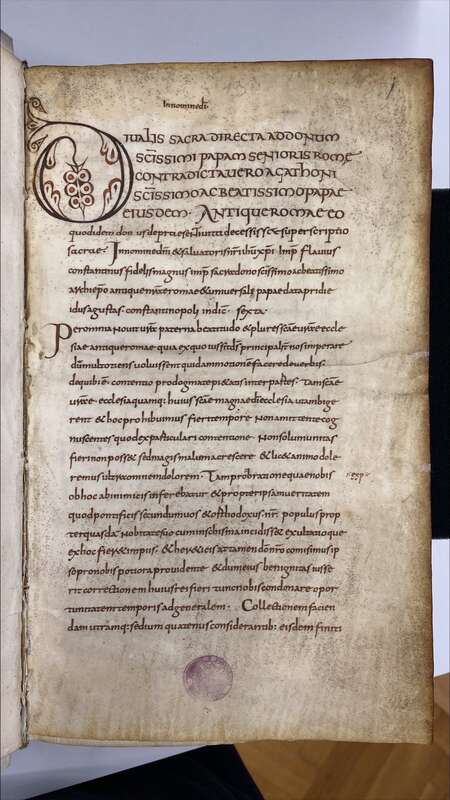 In nomine dni
DIUALIS SACRA DIRECTA AD DONUM
SCISSIMI PAPAM SENIORIS ROME
CONTRADICTA UERO AGATHONI
SCISSIMO AC BEATISSIMO PAPAE
EIUSDEM · ANTIQUE ROMAE EO
quod isdem deptaesenti uita decessisset superscriptio
sacrae · In nomine dni & saluatoris nri ihu xpi imp flauius
constantinus fidelis magnus imp sacro dono scissimo ac beatissimo
archiepo antique urae romae & uniuersali papae data pridie
idus agustas · constantinopoli indic · sexta ·
Per omnia nouit ura paterna beatitudo & plures scae urae eccle
siae antiquae romae quia ex quo iussit ds principali nos imperare
dum multotiens uoluissent quidam motionem facere de uerbis ·
de quib' · contentio pro dogmate pietatis inter partes · Tam scae
urae ecclesiae quamq; huius scae magnae di ecclesia utam bige
rent & hoc prohibuimus fieri tempore Non amittente cog
nuscentes quod ex particulari contentione · Non solum unitas
fieri non posset sed magis malum accrescere & lic& animo dole
remus ultra communem dolorem · Tam probratione quae nobis
ob hoc ab inimicis inferebatur & propter ipsam ueritatem
quod pontificis secundum uos & orthodoxus · nr · populus prop
ter quasda Nobitates in scismam incidisset exultatio que
ex hoc fieret impus · & her&icis attamen dnro comisimus ip
se pro nobis potiora prouidente & dum eius benignitas iusse
rit correctionem huius rei fieri tunc nobis condonare opor
tunitatem temporis ad generalem · Collectionem facien
dam utramq; sedium quatenus considerantib; eisdem finiti